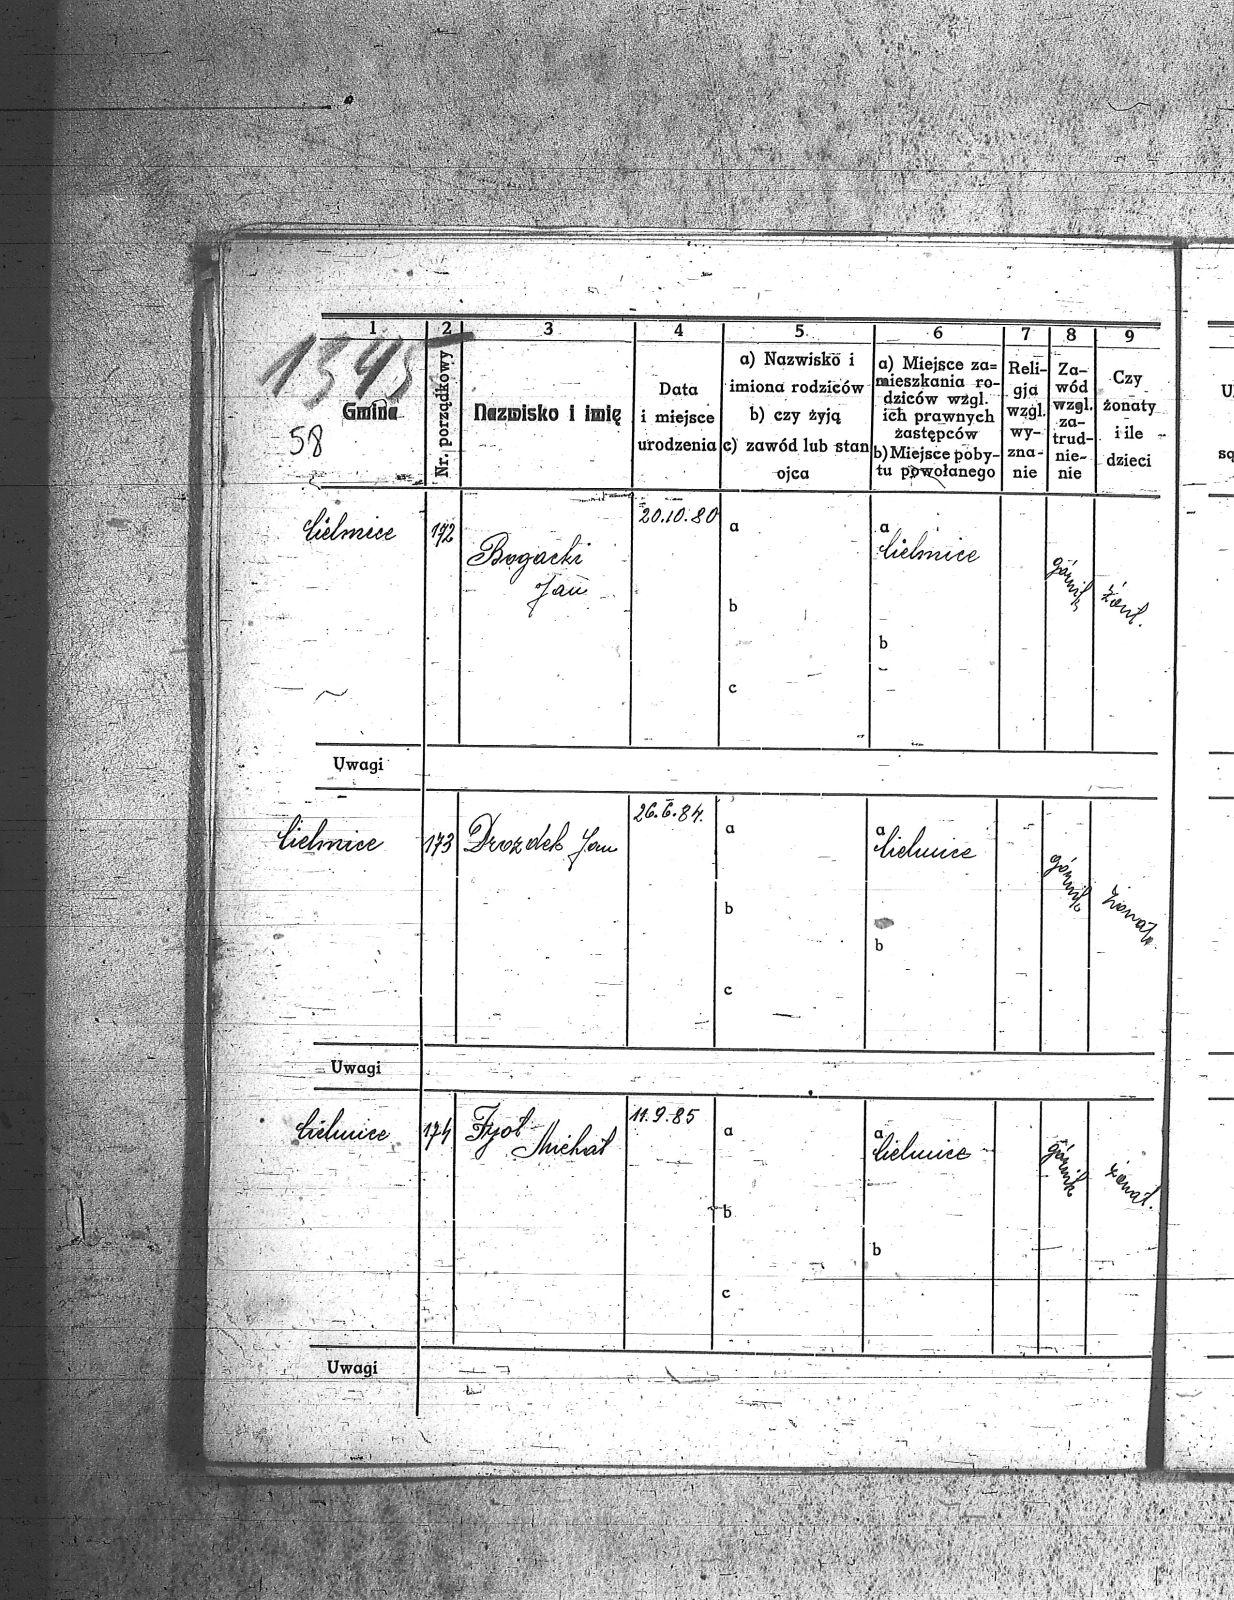 1 2 3 4 5 6 7 8 9
1345
58
Gmina
Nr. porządkowy
Nazwisko i imię
Data
i miejsce
urodzenia
a) Nazwisko i
imiona rodziców
b) czy żyją
c) zawód lub stan
ojca
a) Miejsce za=
mieszkania ro-
dziców wzgl.
ich prawnych
zastępców
b) Miejsce poby-
tu powołanego
Reli-
gja
wzgl.
wy-
zna-
nie
Za-
wód
wzgl.
za-
trud-
nie-
nie
Czy
żonaty
i ile
dzieci
Cielmice 172 Bogacki
Jan
20.10.80
a
b
c
a
Cielmice
b
górnik
żont.
Uwagi
Cielmice 173 Drozdek Jan
26.6.84.
a
b
c
a
Cielmice
b
górnik
żonat.
Uwagi
Cielmice 174 Fyot
Michał
11.9.85
a
b
c
a
Cielmice
b
górnik
żonat.
Uwagi